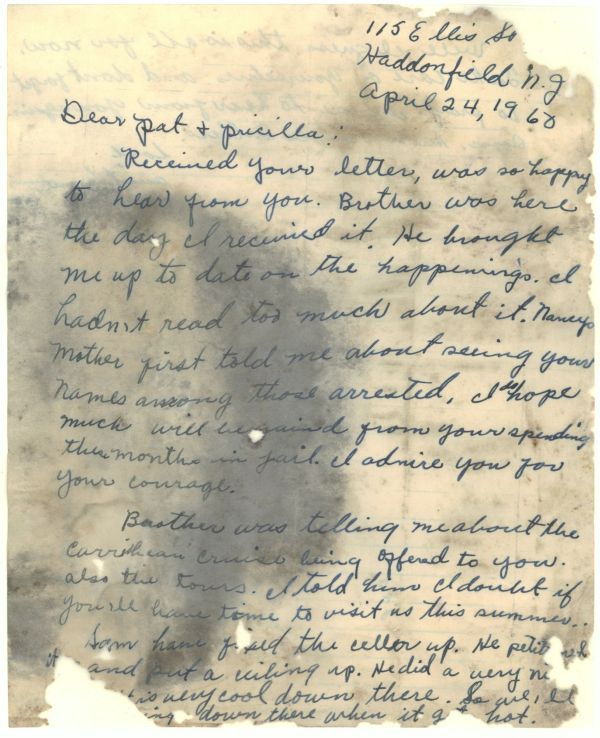 115 Ellis St
Haddonfield N.J
April 24, 1960
Dear Pat & Pricilla:
Received your letter, was so happy
to hear from you. Brother was here
the day I received it. He brought
me up to date on the happenings. I
hadn't read too much about it. Nancy's
Mother first told me about seeing your
names among those arrested. I do hope
much will be gained from your spending
this month in jail. I admire you for
your courage.
Brother was telling me about the
Carribean cruise being offered to you.
also the tours. I told him I doubt if
you'll have time to visit us this summer..
Sam have fixed the celler up. He
and put a ceiling up. He did a very
is very cool down there. So
down there when it hot.